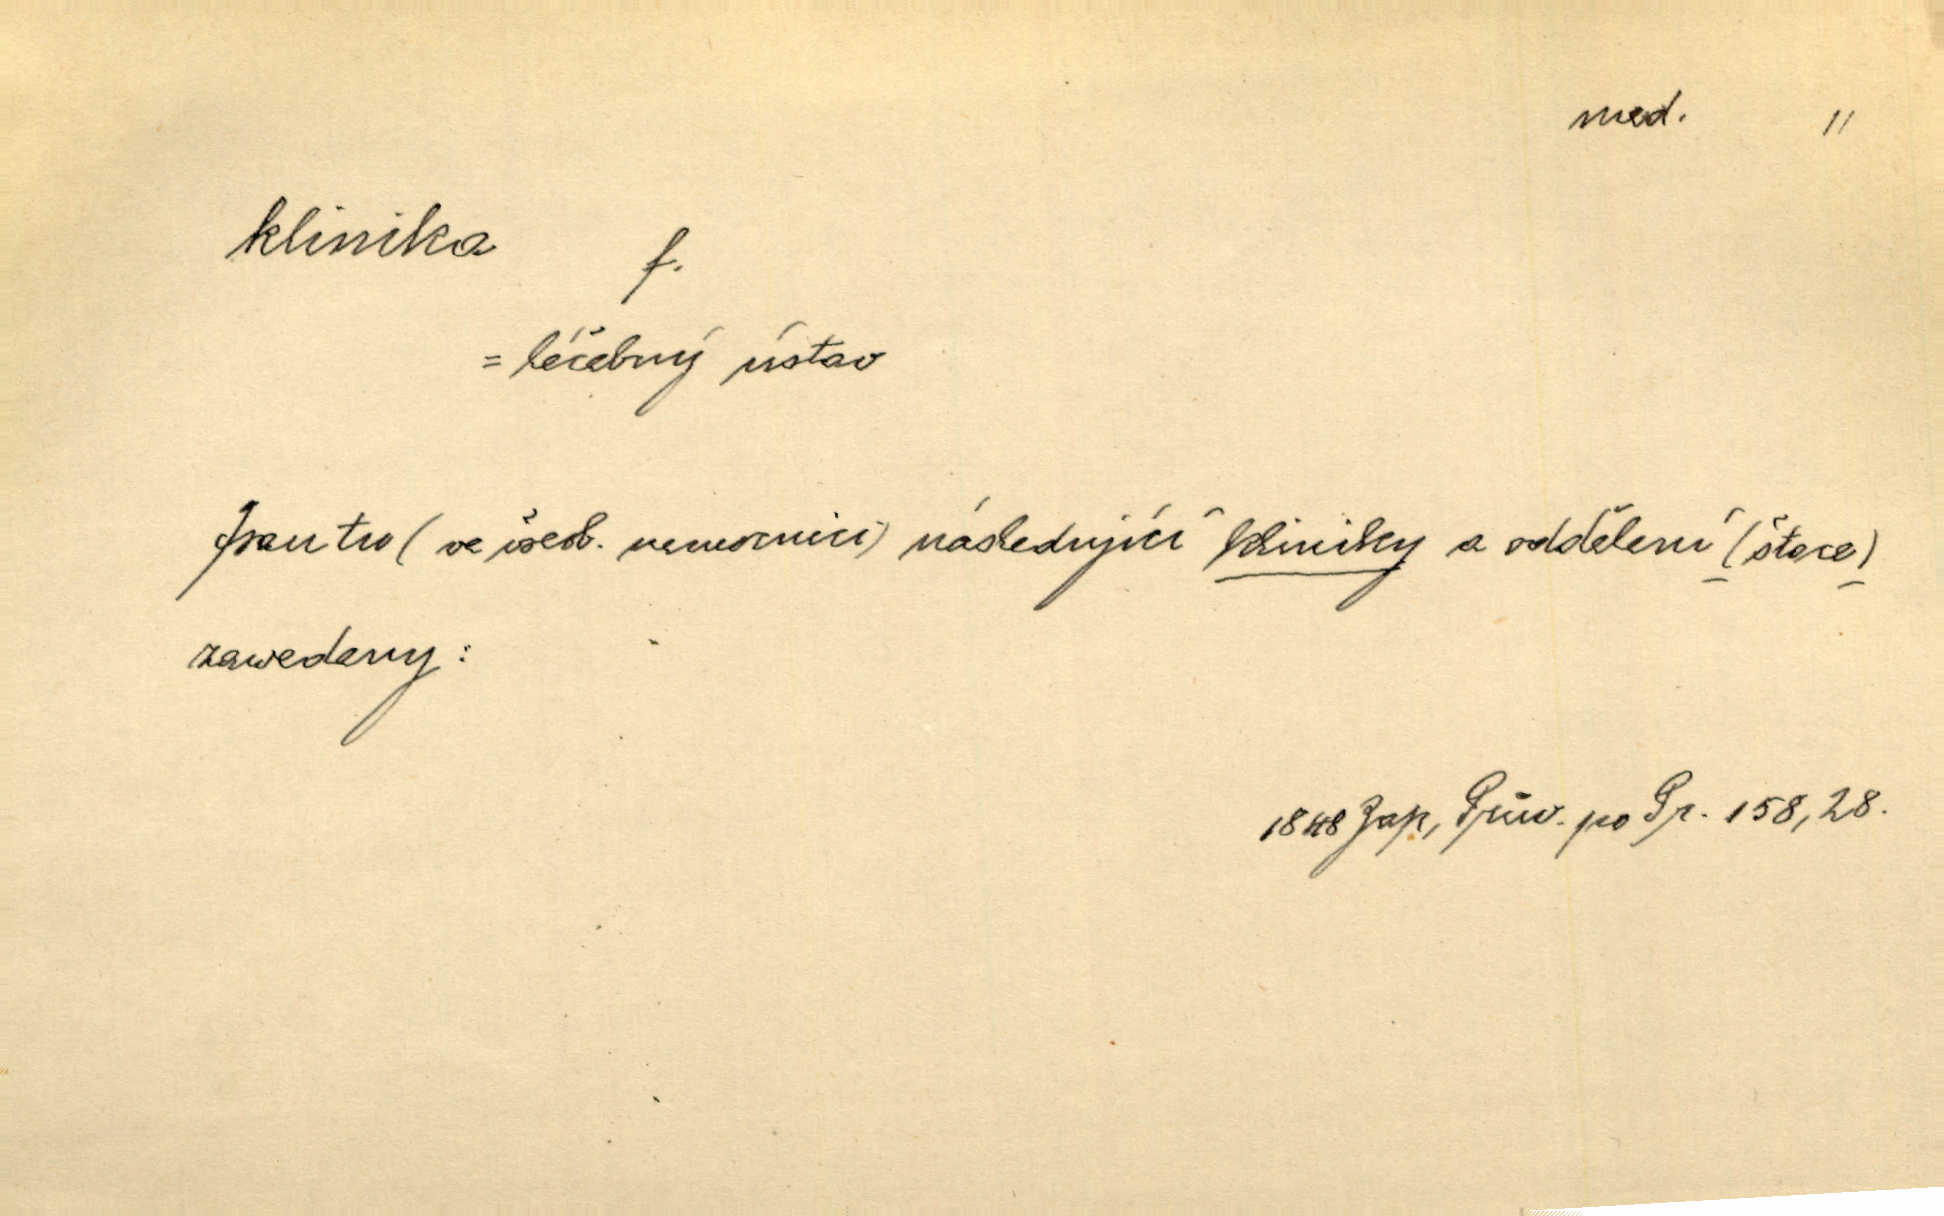 med. "
klinika f.
= léčebný ústav
Jsau tu (ve všeob. nemocnici) následující kliniky a oddělení (štace)
zawedeny:
1848 Zap, Průw. po Pr. 158, 28.